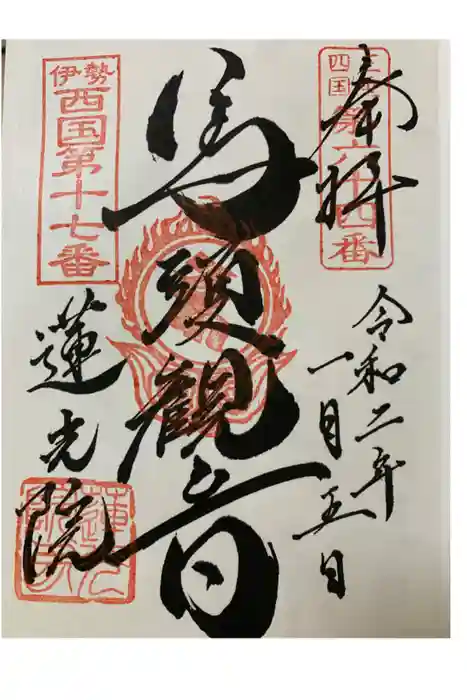 奉拝
三重
四国
第六十四番
令和二年
一月五日
馬頭観音
伊勢
西国第十七番
蓮光院